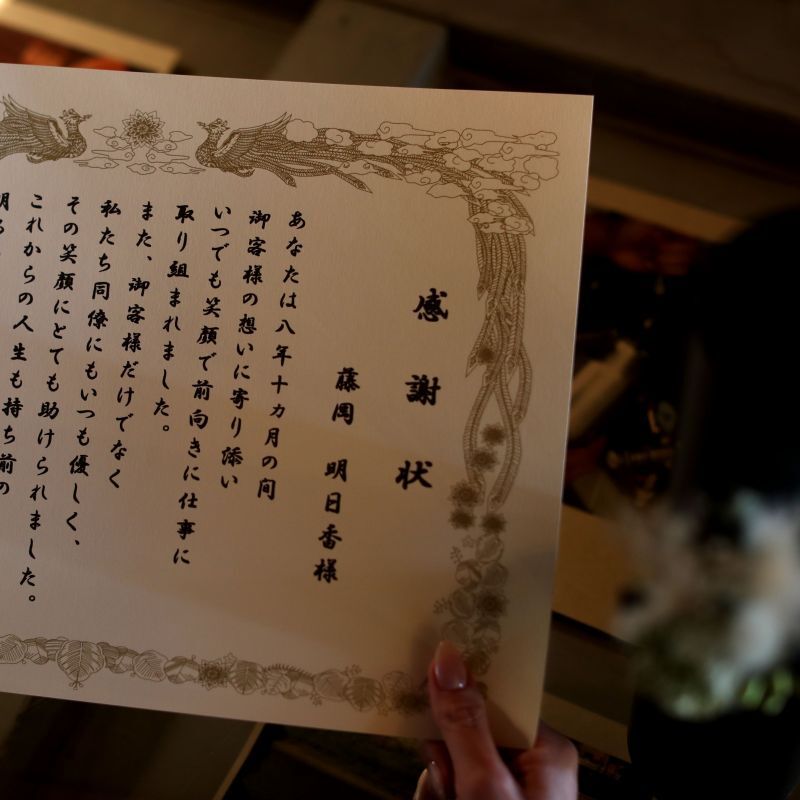 感謝状
藤岡 明日香様
あなたは八年十カ月の間
御客様の想いに寄り添い
いつでも笑顔で前向きに仕事に
取り組まれました。
また、御客様だけでなく
私たち同僚にもいつも優しく、
その笑顔にとても助けられました。
これからの人生も持ち前の